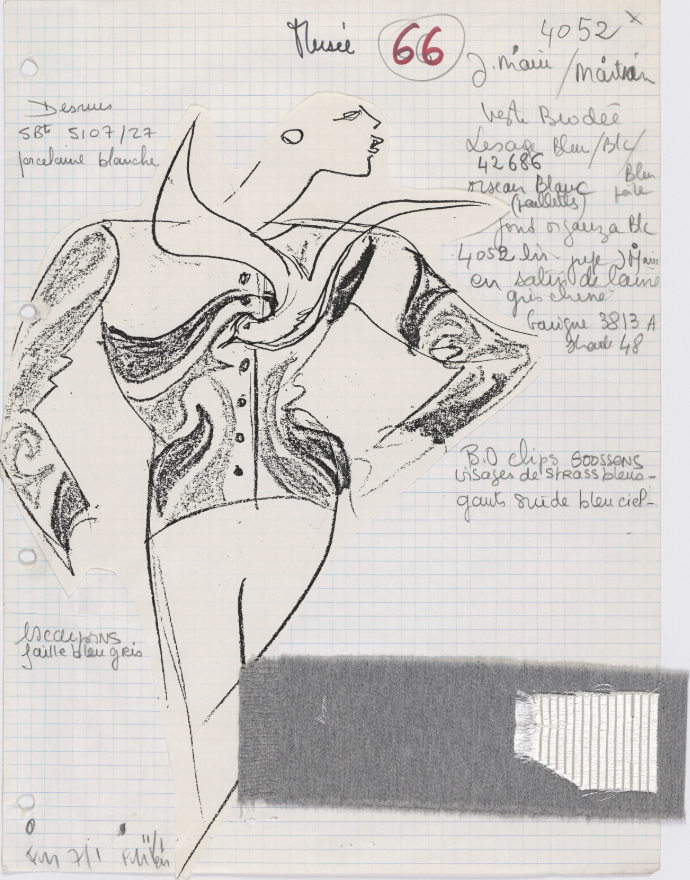 Musée
66
4052 x
J. Marie / Martian
Desrues
SBt 5107/27
porcelaine blanche
Veste Brodée
Lesage Bleu/Blc/
42686
Bleu
oiseau Blanc
(paillettes)
fond organza Blc
4052 bis jupe J Marie
en satin de laine
gris chiné
Garigue 3813 A
shade 48
B.O clips GOOSSENS
visages de strass bleus -
gants suède bleu ciel -
escarpins
faille bleu gris
7/1
11/1